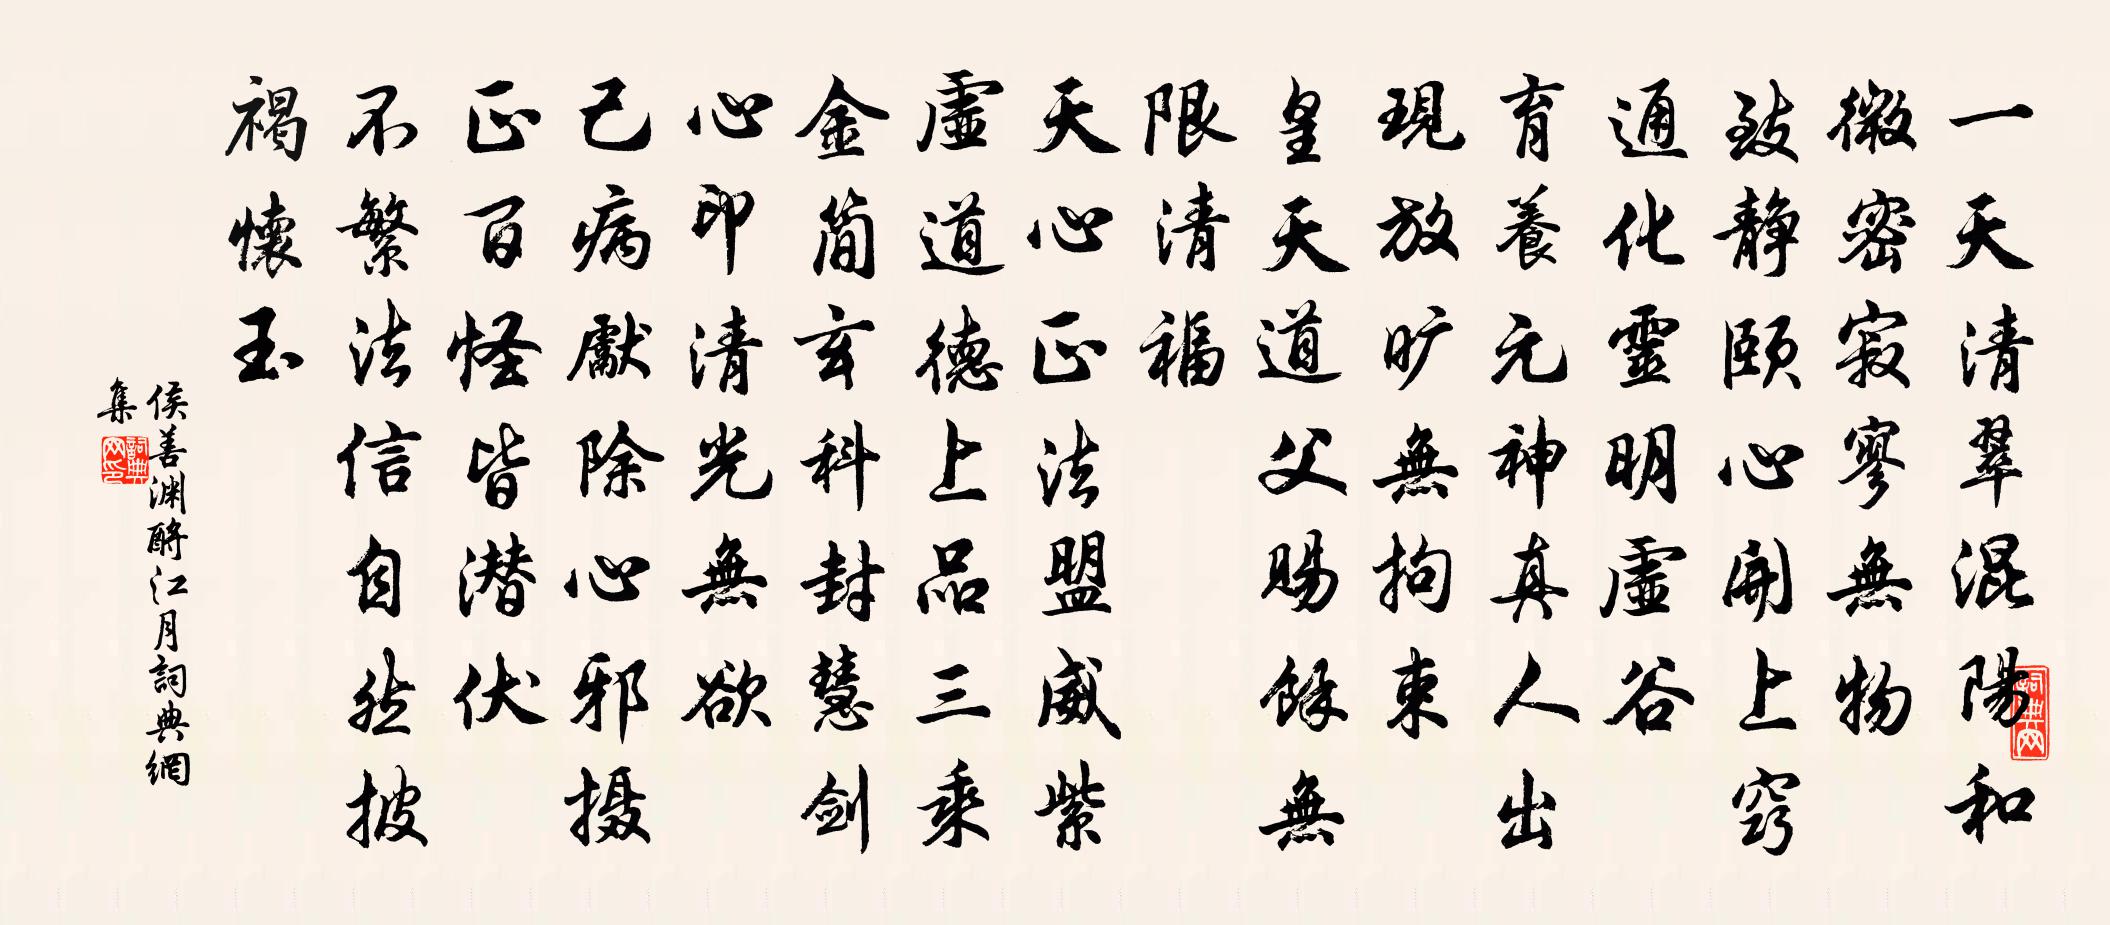 一天清翠混陽和
微密寂寥無物
致靜頤心開上竅
通化靈明虛谷
育養元神真人出
現放旷無拘束
皇天道父賜餘無
限清福
天心正法盟威紫
虛道德上品三乘
金简玄科封慧剑
心印清光無欲
己病獻除心邪摄
正百怪皆潜伏
不繁法信自然披
褐懷玉
侯善渊酹江月詞典網
集
詞典网
詞典网印